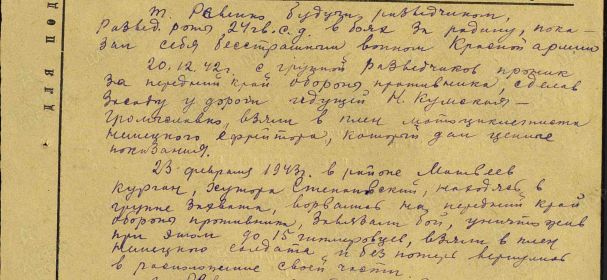 т. Р Будучи разведчиком,
Развед. роты 24 гв. с. д. в боях за родину, пока-
зал себя бесстрашным воином Красной армии
20.12.42г. с группой разведчиков проник
за передний край обороны противника, сделав
Засаду у дороги идущей Н. Кумская –
Громославка, взяли в плен мотоциклиста
немецкого ефрейтора, который дал ценные
показания.
23 февраля 1943г. в районе Матвеев
Курган, Хутора Степановский, находясь в
группе Захвата, ворвались на передний край
обороны противника, Завязали бой, уничтожив
при этом до 15 гитлеровцев, взяли в плен
немецкого солдата и без потерь вернулись
в расположение своей части.